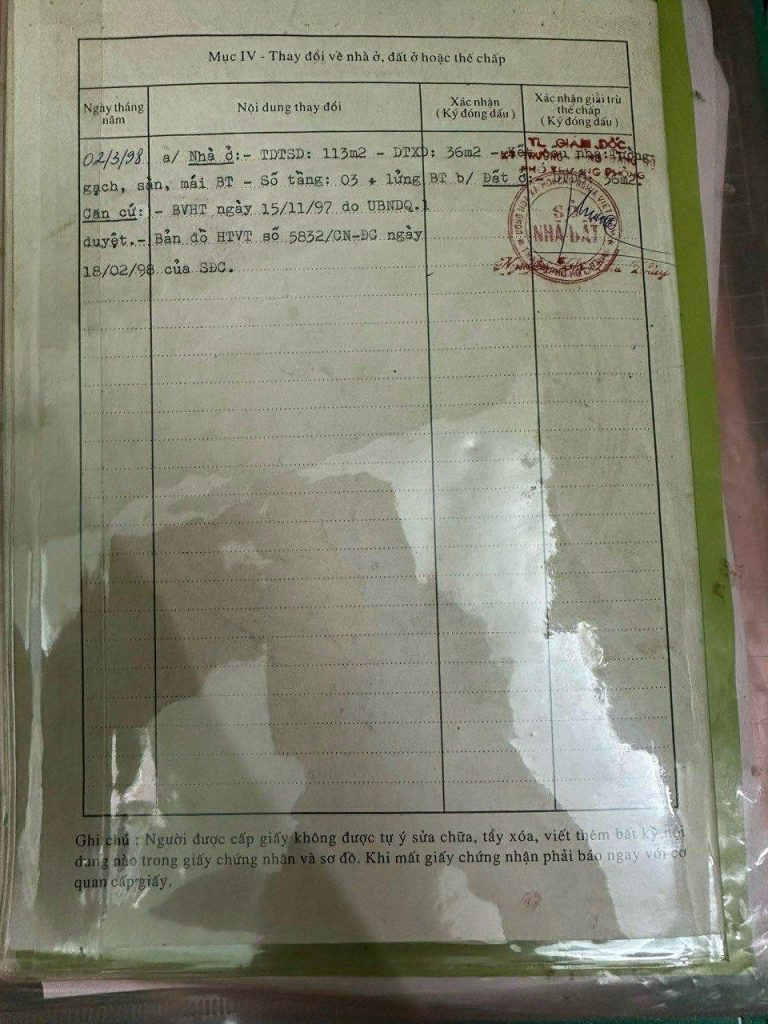 Mục IV - Thay đổi về nhà ở, đất ở hoặc thế chấp
Ngày tháng năm
Nội dung thay đổi
Xác nhận
( Ký đóng dấu )
Xác nhận giải trừ
thế chấp
( Ký đóng dấu )
02/3/98 a/ Nhà ở:- TDTSD: 113m2 - DTXD: 36m2 -
gạch, sàn, mái BT - Số tầng: 03 + lửng BT b/ Đất ở 36m2.
Căn cứ: - BVHT ngày 15/11/97 do UBNDQ.1
duyệt.- Bản đồ HTVT số 5832/CN-ĐC ngày
18/02/98 của SĐC.
TL. GIÁM ĐỐC
SỞ
NHÀ ĐẤT
Ghi chú : Người được cấp giấy không được tự ý sửa chữa, tẩy xóa, viết thêm bất kỳ nội
dung nào trong giấy chứng nhận và sơ đồ. Khi mất giấy chứng nhận phải báo ngay với cơ
quan cấp giấy.